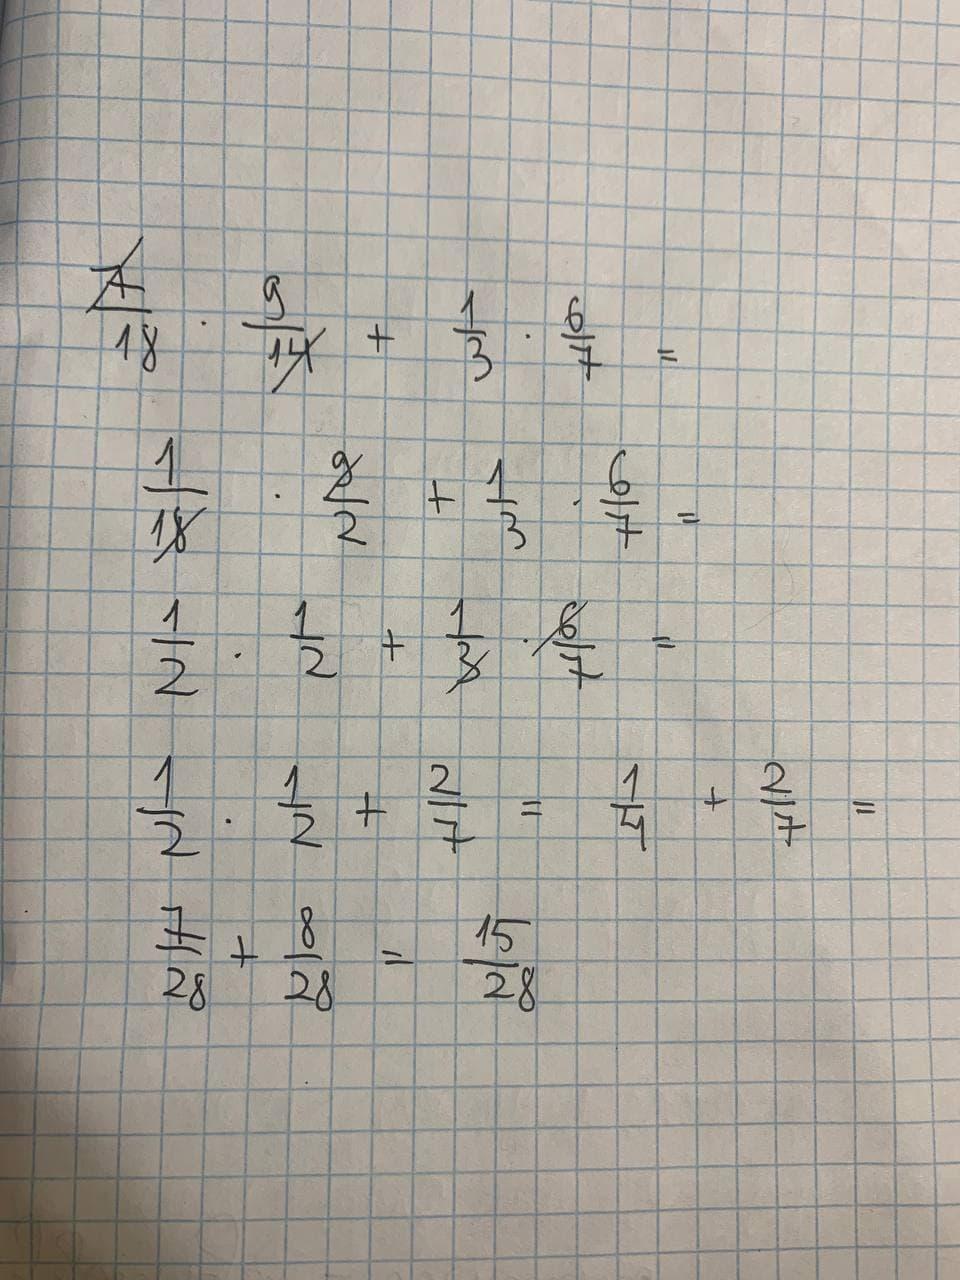 7/18 · 9/14 + 1/3 · 6/7 =
1/18 · 9/2 + 1/3 · 6/7 =
1/2 · 1/2 + 1/3 · 6/7 =
1/2 · 1/2 + 2/7 = 1/4 + 2/7 =
7/28 + 8/28 = 15/28